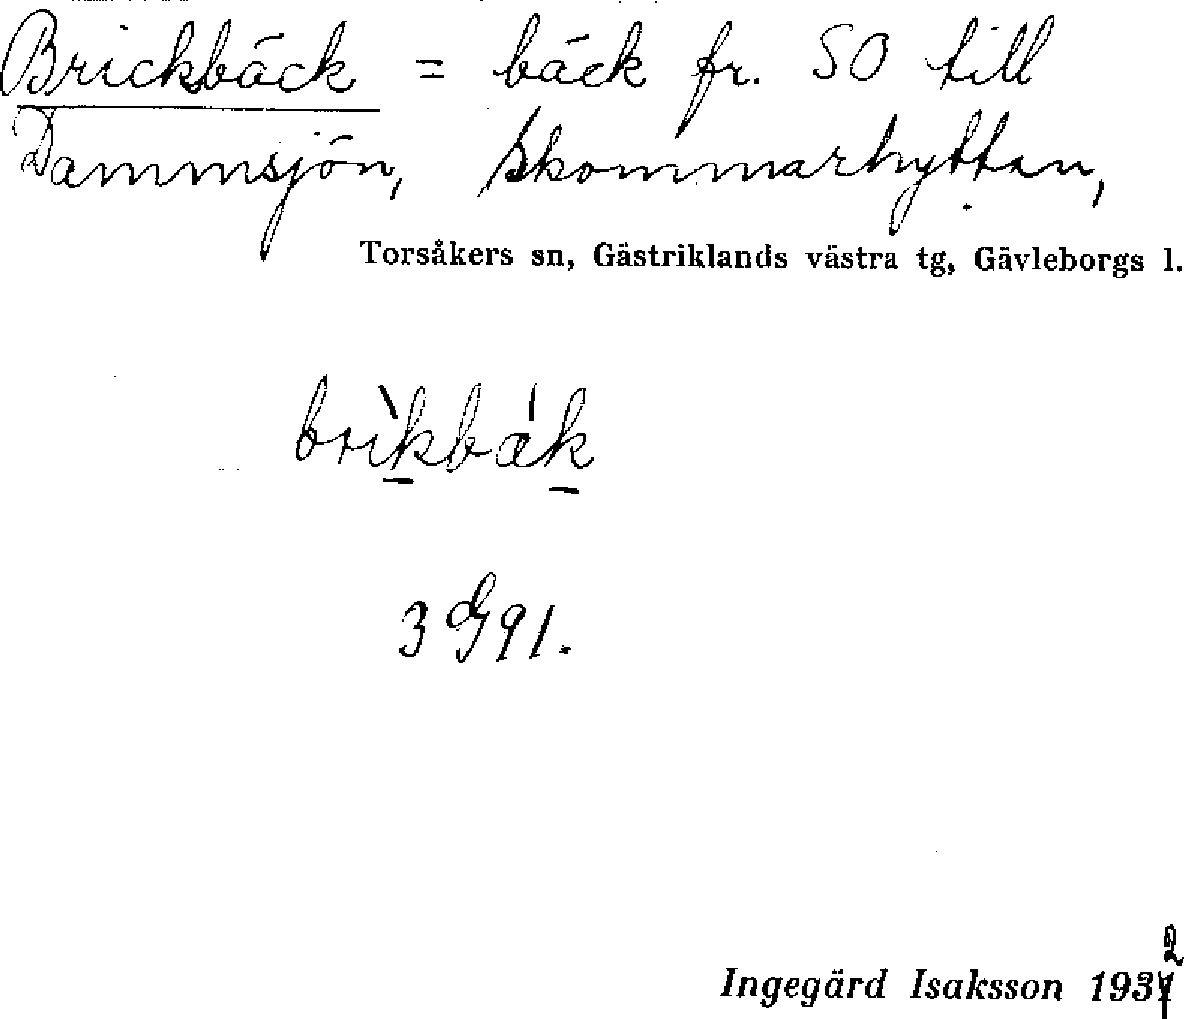 Brickbäck = bäck fr. SO till
Dammsjön, Skommarhyttan,
Torsåkers sn, Gästriklands västra tg, Gävleborgs l.
brìkbæ'k
3 G 91.
Ingegärd Isaksson 1932